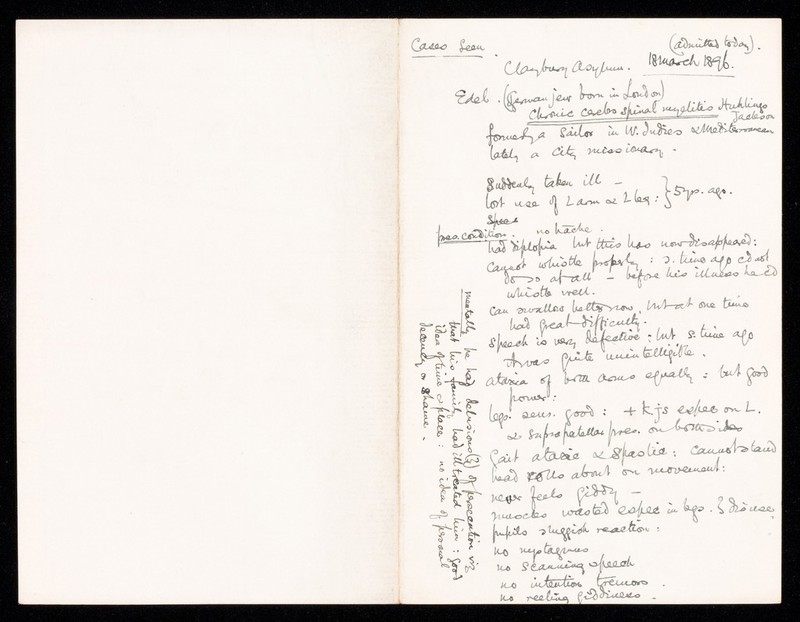 Cases Seen.
(admitted today).
Claybury Asylum. 18 March 1896.
Edel. (German jew born in London)
Chronic cerebo spinal myelitis Huhlings
Jackson
formerly a Sailor in W. Indies & Mediterranean
lately a City missionary.
Suddenly taken ill –
lost use of L arm & L leg: } 5 yrs. ago.
Spee
pres. condition. no hache.
had diplopia but this has now disappeared:
cannot whistle properly: s. time ago cd not
do so at all – before his illness he cd
whistle well.
can swallow better now, but at one time
had great difficulty.
Speech is very defective: but s. time ago
it was quite unintelligible.
ataxia of both arms equally: but good
power:
legs. sens. good: + k.js espec on L.
& suprapatellar pres. on both sides
Gait ataxic & spastic: cannot stand
head rolls about on movement:
never feels giddy –
muscles wasted espec in legs. ? disuse.
pupils sluggish reaction:
no nystagmus
no scanning speech
no intention tremors.
no reeling giddiness.
mentally he had delusions (?) of persecution viz
that his family had illtreated him: good
idea of time & place: no idea of personal
decency or shame.